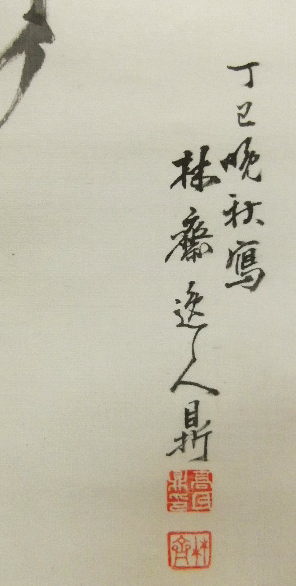 丁巳晩秋寫
林齋逸人鼎
林齊